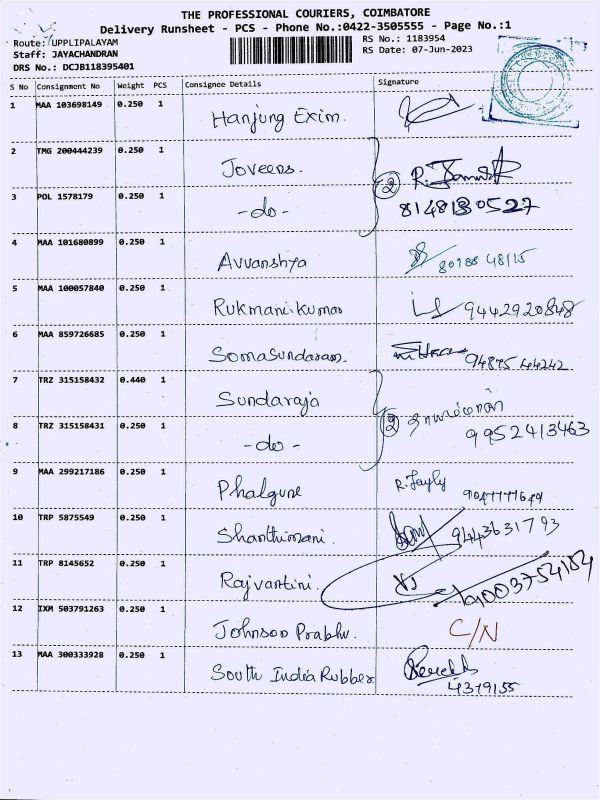 THE PROFESSIONAL COURIERS, COIMBATORE
Delivery Runsheet - PCS - Phone No.:0422-3505555 - Page No.:1
Route: UPPLIPALAYAM
RS No.: 1183954
Staff: JAYACHANDRAN
RS Date: 07-Jun-2023
DRS No.: DCJB118395401
S No Consignment No Weight PCS Consignee Details Signature
1 MAA 103698149 0.250 1 Hanjung Exim.
2 TMG 200444239 0.250 1 Joveens.
3 POL 1578179 0.250 1 -do- 2 8148130527
4 MAA 101680899 0.250 1 Avvanshya 80188 48115
5 MAA 100057840 0.250 1 Rukmani kumar 9442920848
6 MAA 859726685 0.250 1 SomaSundaram. 94895 44242
7 TRZ 315158432 0.440 1 Sundaraja
8 TRZ 315158431 0.250 1 -do- 2 9952413463
9 MAA 299217186 0.250 1 Phalgune
10 TRP 5875549 0.250 1 Shanthimani. 9443631793
11 TRP 8145652 0.250 1 Rajvantini. 9003754184
12 IXM 503791263 0.250 1 Johnson Prabhu. C/N
13 MAA 300333928 0.250 1 South India Rubber 4379155